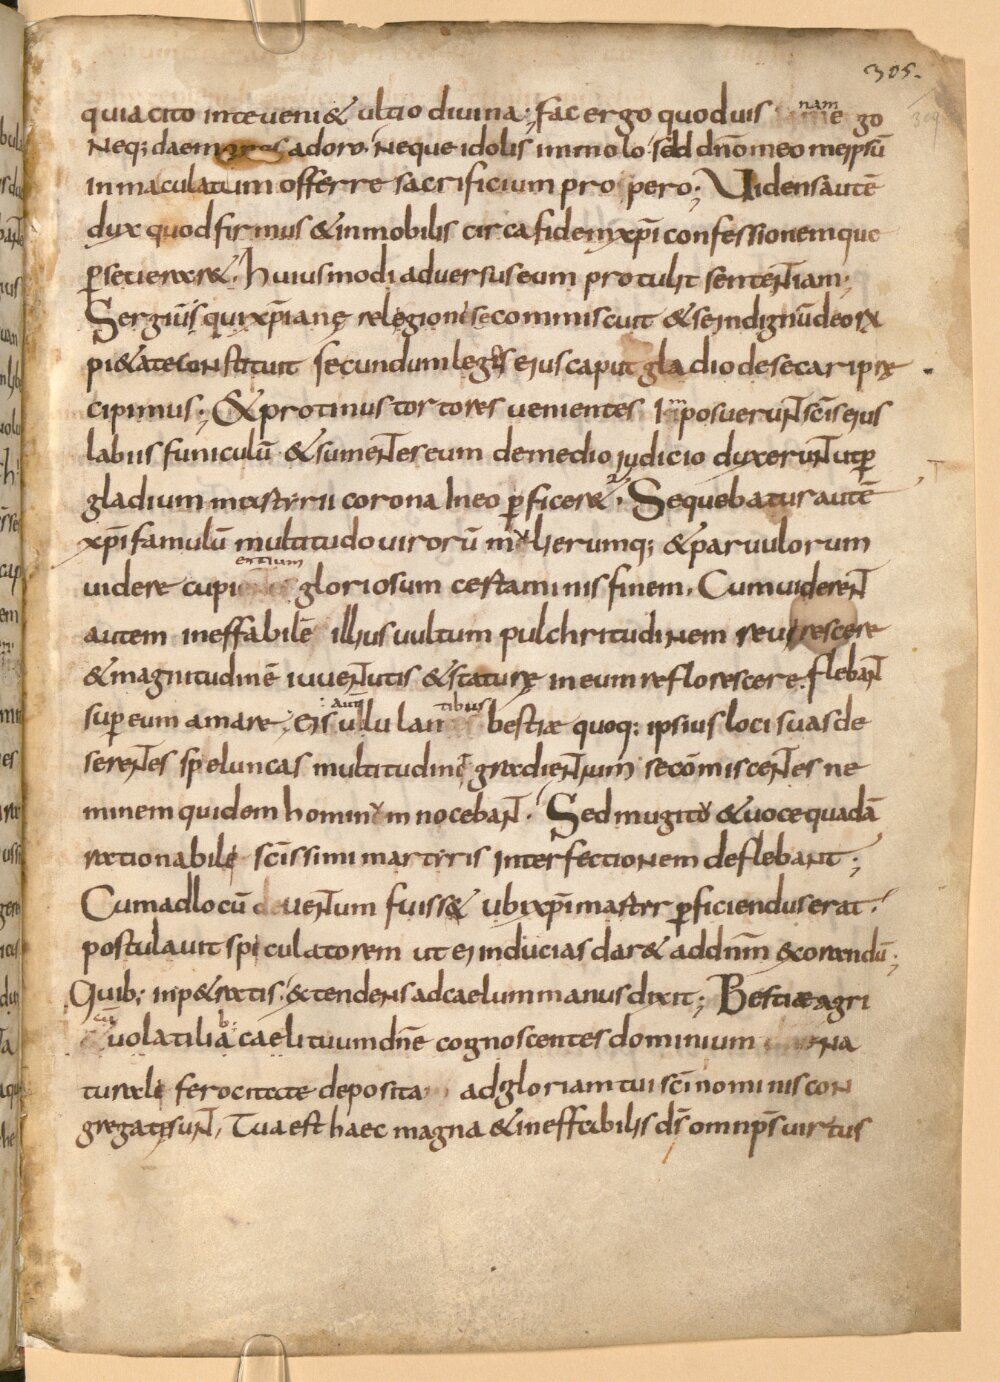 305.
quia cito inteveni& ultio divina; fac ergo quod uis nam ego
Neq; daemones adoro, Neque idolis immolo sed dn̄o meo meipsū
inmaculatum offerre sacrificium pro pero; Videns autē
dux quod firmus & inmobilis circa fidem xp̄i confessionemque
p̄seueraret&. huiusmodi adversus eum protulit sentenNiam;
Sergiūs qui xp̄ianę relegionis se commiscuit & se indignū deorx
pi&ate constituit secundum leges eius caput gladio desecari pre
cipimus; & protinus tortores uenientes imposuerunt sc̄is eius
labiis funiculū & sumentes eum de medio iudicio duxerunt ut p̄
gladium martyrii corona in eo p̄ficer&. Sequebatur autē
xp̄i famulū multitudo uirorū mulierumq; & paruulorum
ertium
uidere cupi gloriosum certaminis finem. Cum uiderent
autem ineffabilē illius uultum pulchritudinem reuirescere
& magnitudinē iuuentutis & staturę in eum reflorescere. flebant
super eum amare; eis aūt ululantibus bestiæ quoq; ipsius loci suas de
serentes speluncas multitudini gradientium se cōmiscentes ne
minem quidem hominum nocebant. Sed mugitu & uoce quadā
rationabile sc̄issimi martyris interfectionem deflebant;
Cum ad locū uentum fuiss& ubi xp̄i martyr p̄ficiendus erat.
postulauit speculatorem ut ei inducias dar& ad dn̄m &orandū;
Quib; inp&ratis; &tendens ad caelum manus dixit; Bestiæ agri
cū uolatilib; caeli tuum dn̄e cognoscentes dominium na
turale ferocitate deposita ad gloriam tui sc̄i nominis con
gregate sunt, Tua est haec magna & ineffabilis d̄s omnip̄s uirtus